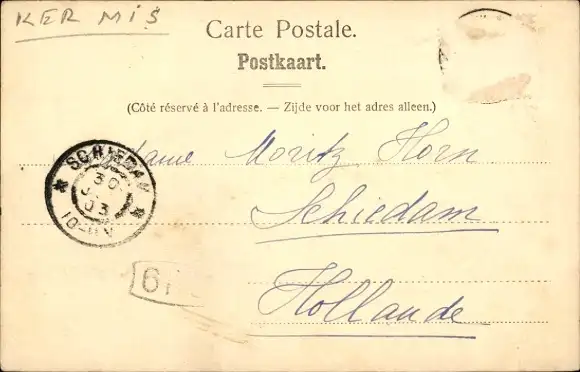 KER MIS
Carte Postale.
Postkaart.
(Côté réservé à l'adresse. — Zijde voor het adres alleen.)
Moritz Horn
SCHIEDAM
30
03
10-11V
Schiedam
Hollande